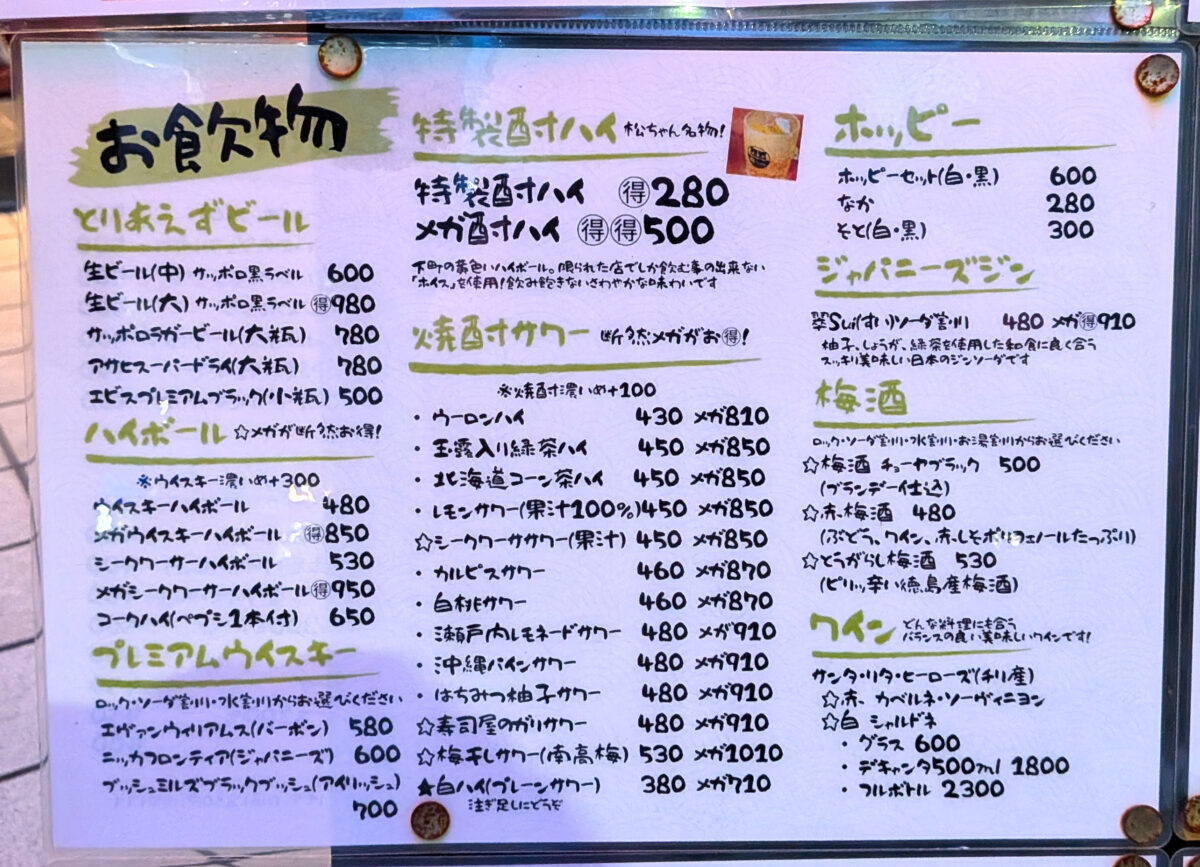 お飲物
とりあえずビール
生ビール(中) サッポロ黒ラベル 600
生ビール(大) サッポロ黒ラベル 得980
サッポロラガービール(大瓶) 780
アサヒスーパードライ(大瓶) 780
エビスプレミアムブラック(小瓶) 500
ハイボール ☆メガが断然お得!
※ウイスキー濃いめ+300
ウイスキーハイボール 480
メガウイスキーハイボール 得850
シークワーサーハイボール 530
メガシークワーサーハイボール 得950
コークハイ(ペプシ1本付) 650
プレミアムウイスキー
ロック・ソーダ割り・水割りからお選びください
エヴァンウィリアムス(バーボン) 580
ニッカフロンティア(ジャパニーズ) 600
ブッシュミルズブラックブッシュ(アイリッシュ)
700
特製酎ハイ 松ちゃん名物!
特製酎ハイ 得280
メガ酎ハイ 得得500
下町の黄色いハイボール。限られた店でしか飲む事の出来ない
「ホイス」を使用!飲み飽きないさわやかな味わいです
焼酎サワー 断然メガがお得!
※焼酎濃いめ+100
・ウーロンハイ 430 メガ810
・玉露入り緑茶ハイ 450 メガ850
・北海道コーン茶ハイ 450 メガ850
・レモンサワー(果汁100%) 450 メガ850
☆シークワーササワー(果汁) 450 メガ850
・カルピスサワー 460 メガ870
・白桃サワー 460 メガ870
・瀬戸内レモネードサワー 480 メガ910
・沖縄パインサワー 480 メガ910
・はちみつ柚子サワー 480 メガ910
☆寿司屋のガリサワー 480 メガ910
☆梅干しサワー(南高梅) 530 メガ1010
★白ハイ(プレーンサワー) 380 メガ710
注ぎ足しにどうぞ
ホッピー
ホッピーセット(白・黒) 600
なか 280
そと(白・黒) 300
ジャパニーズジン
翠Sui(すい)ソーダ割り 480 メガ得910
柚子、しょうが、緑茶を使用した和食に良く合う
スッキリ美味しい日本のジンソーダです
梅酒
ロック・ソーダ割り・水割り・お湯割りからお選びください
☆梅酒 チョーヤブラック 500
(ブランデー仕込)
☆赤梅酒 480
(ぶどう、ワイン、赤しそポリフェノールたっぷり)
☆とうがらし梅酒 530
(ピリッ辛い徳島産梅酒)
ワイン どんな料理にも合う
バランスの良い美味しいワインです!
サンタ・リタ・ヒーローズ(チリ産)
☆赤 カベルネ・ソーヴィニヨン
☆白 シャルドネ
・グラス 600
・デキャンタ500ml 1800
・フルボトル 2300